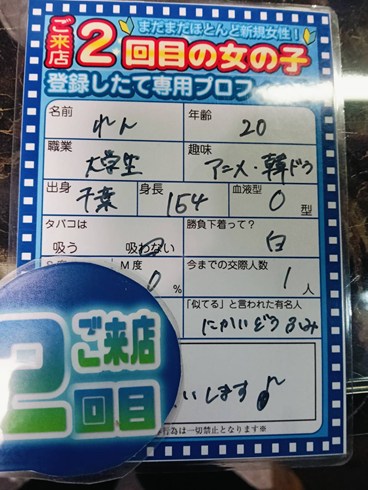 まだまだほとんど新規女性!
ご来店2回目の女の子
登録したて専用プロフィ
名前 れん 年齢 20
職業 大学生 趣味 アニメ・韓ドラ
出身 千葉 身長 154 血液型 O 型
タバコは 勝負下着って?
吸う 吸わない 白
M度 今までの交際人数
0 % 1 人
「似てる」と言われた有名人
にかいどうるみ
ご来店
2回目
いします♪
行為は一切禁止となります※